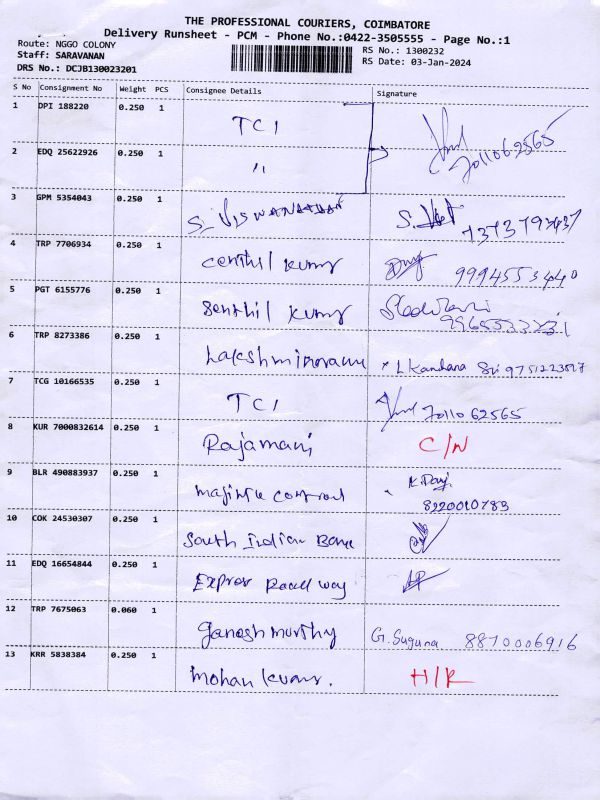 THE PROFESSIONAL COURIERS, COIMBATORE
Delivery Runsheet - PCM - Phone No.:0422-3505555 - Page No.:1
Route: NGGO COLONY
Staff: SARAVANAN
DRS No.: DCJB130023201
RS No.: 1300232
RS Date: 03-Jan-2024
S No Consignment No Weight PCS Consignee Details Signature
1 DPI 188220 0.250 1 TCI
2 EDQ 25622926 0.250 1 " 7011062565
3 GPM 5354043 0.250 1 S. VISWANATHAN S.
4 TRP 7706934 0.250 1 Centhil kumr 9994553440
5 PGT 6155776 0.250 1 Senthil kumr
6 TRP 8273386 0.250 1 L Kandana Sri
7 TCG 10166535 0.250 1 TCI 7011062565
8 KUR 7000832614 0.250 1 Rajamani C/N
9 BLR 490883937 0.250 1 8220010783
10 COK 24530307 0.250 1 South Indian Bank
11 EDQ 16654844 0.250 1 Expres Road way
12 TRP 7675063 0.060 1 Ganesh murthy G. Suguna 8870006916
13 KRR 5838384 0.250 1 Mohan kumr. H/R